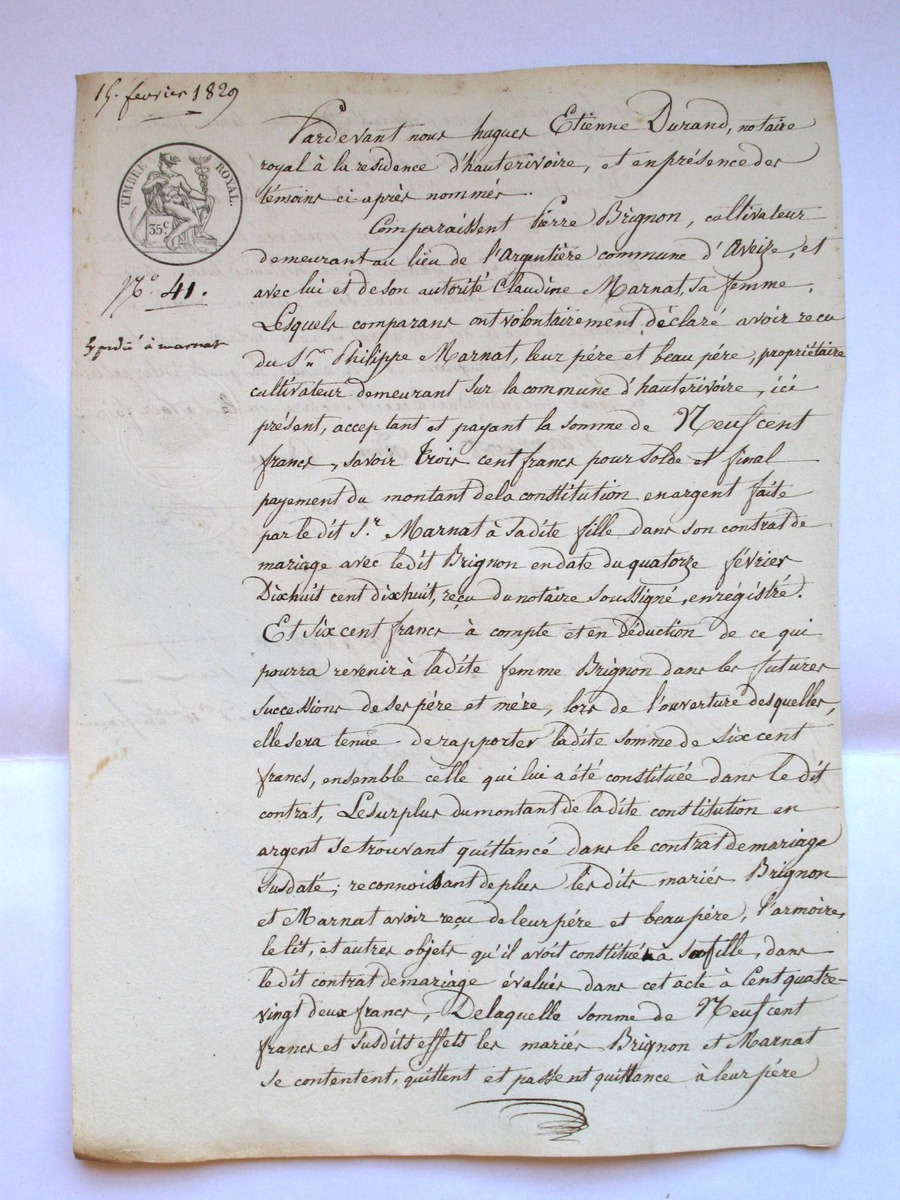 15. fevrier 1829
TIMBRE ROYAL.
35 c
N.o 41.
Expédié à marnat
Pardevant nous hugues Etienne Durand, notaire
royal à la residence d'hauterivoire, et en présence des
témoins ci après nommés.
Comparaissent Pierre Brignon, cultivateur
demeurant au lieu de l'Argentière commune d'Aveize, et
avec lui et de son autorité Claudine Marnat, sa femme.
Lesquels comparans ont volontairement déclaré avoir recu
du S.r Philippe Marnat, leur pére et beau pére, propriétaire
cultivateur demeurant sur la commune d'hauterivoire, ici
présent, acceptant et payant la somme de Neuf cent
francs, savoir trois cent francs pour solde et final
payement du montant de la constitution en argent faite
par le dit S.r Marnat à sa dite fille dans son contrat de
mariage avec le dit Brignon en date du quatorze février
Dix huit cent dix huit, reçu du notaire soussigné, enrégistré.
Et six cent francs à compte et en déduction de ce qui
pourra revenir à la dite femme Brignon dans les futures
successions de ses pére et mére, lors de l'ouverture desquelles,
elle sera tenue de rapporter la dite somme de six cent
francs, ensemble celle qui lui a été constituée dans le dit
contrat, Le surplus du montant de la dite constitution en
argent se trouvant quittancé dans le contrat de mariage
susdaté; reconnoissant de plus les dits mariés Brignon
et Marnat avoir reçu de leur pére et beau pére, l'armoire,
le lit, et autres objets qu'il avoit constitués à sa fille, dans
le dit contrat de mariage évalués dans cet acte à Cent quatre-
vingt deux francs, De laquelle somme de Neuf cent
francs et susdits effets les mariés Brignon et Marnat
se contentent, quittent et passent quittance à leur pére